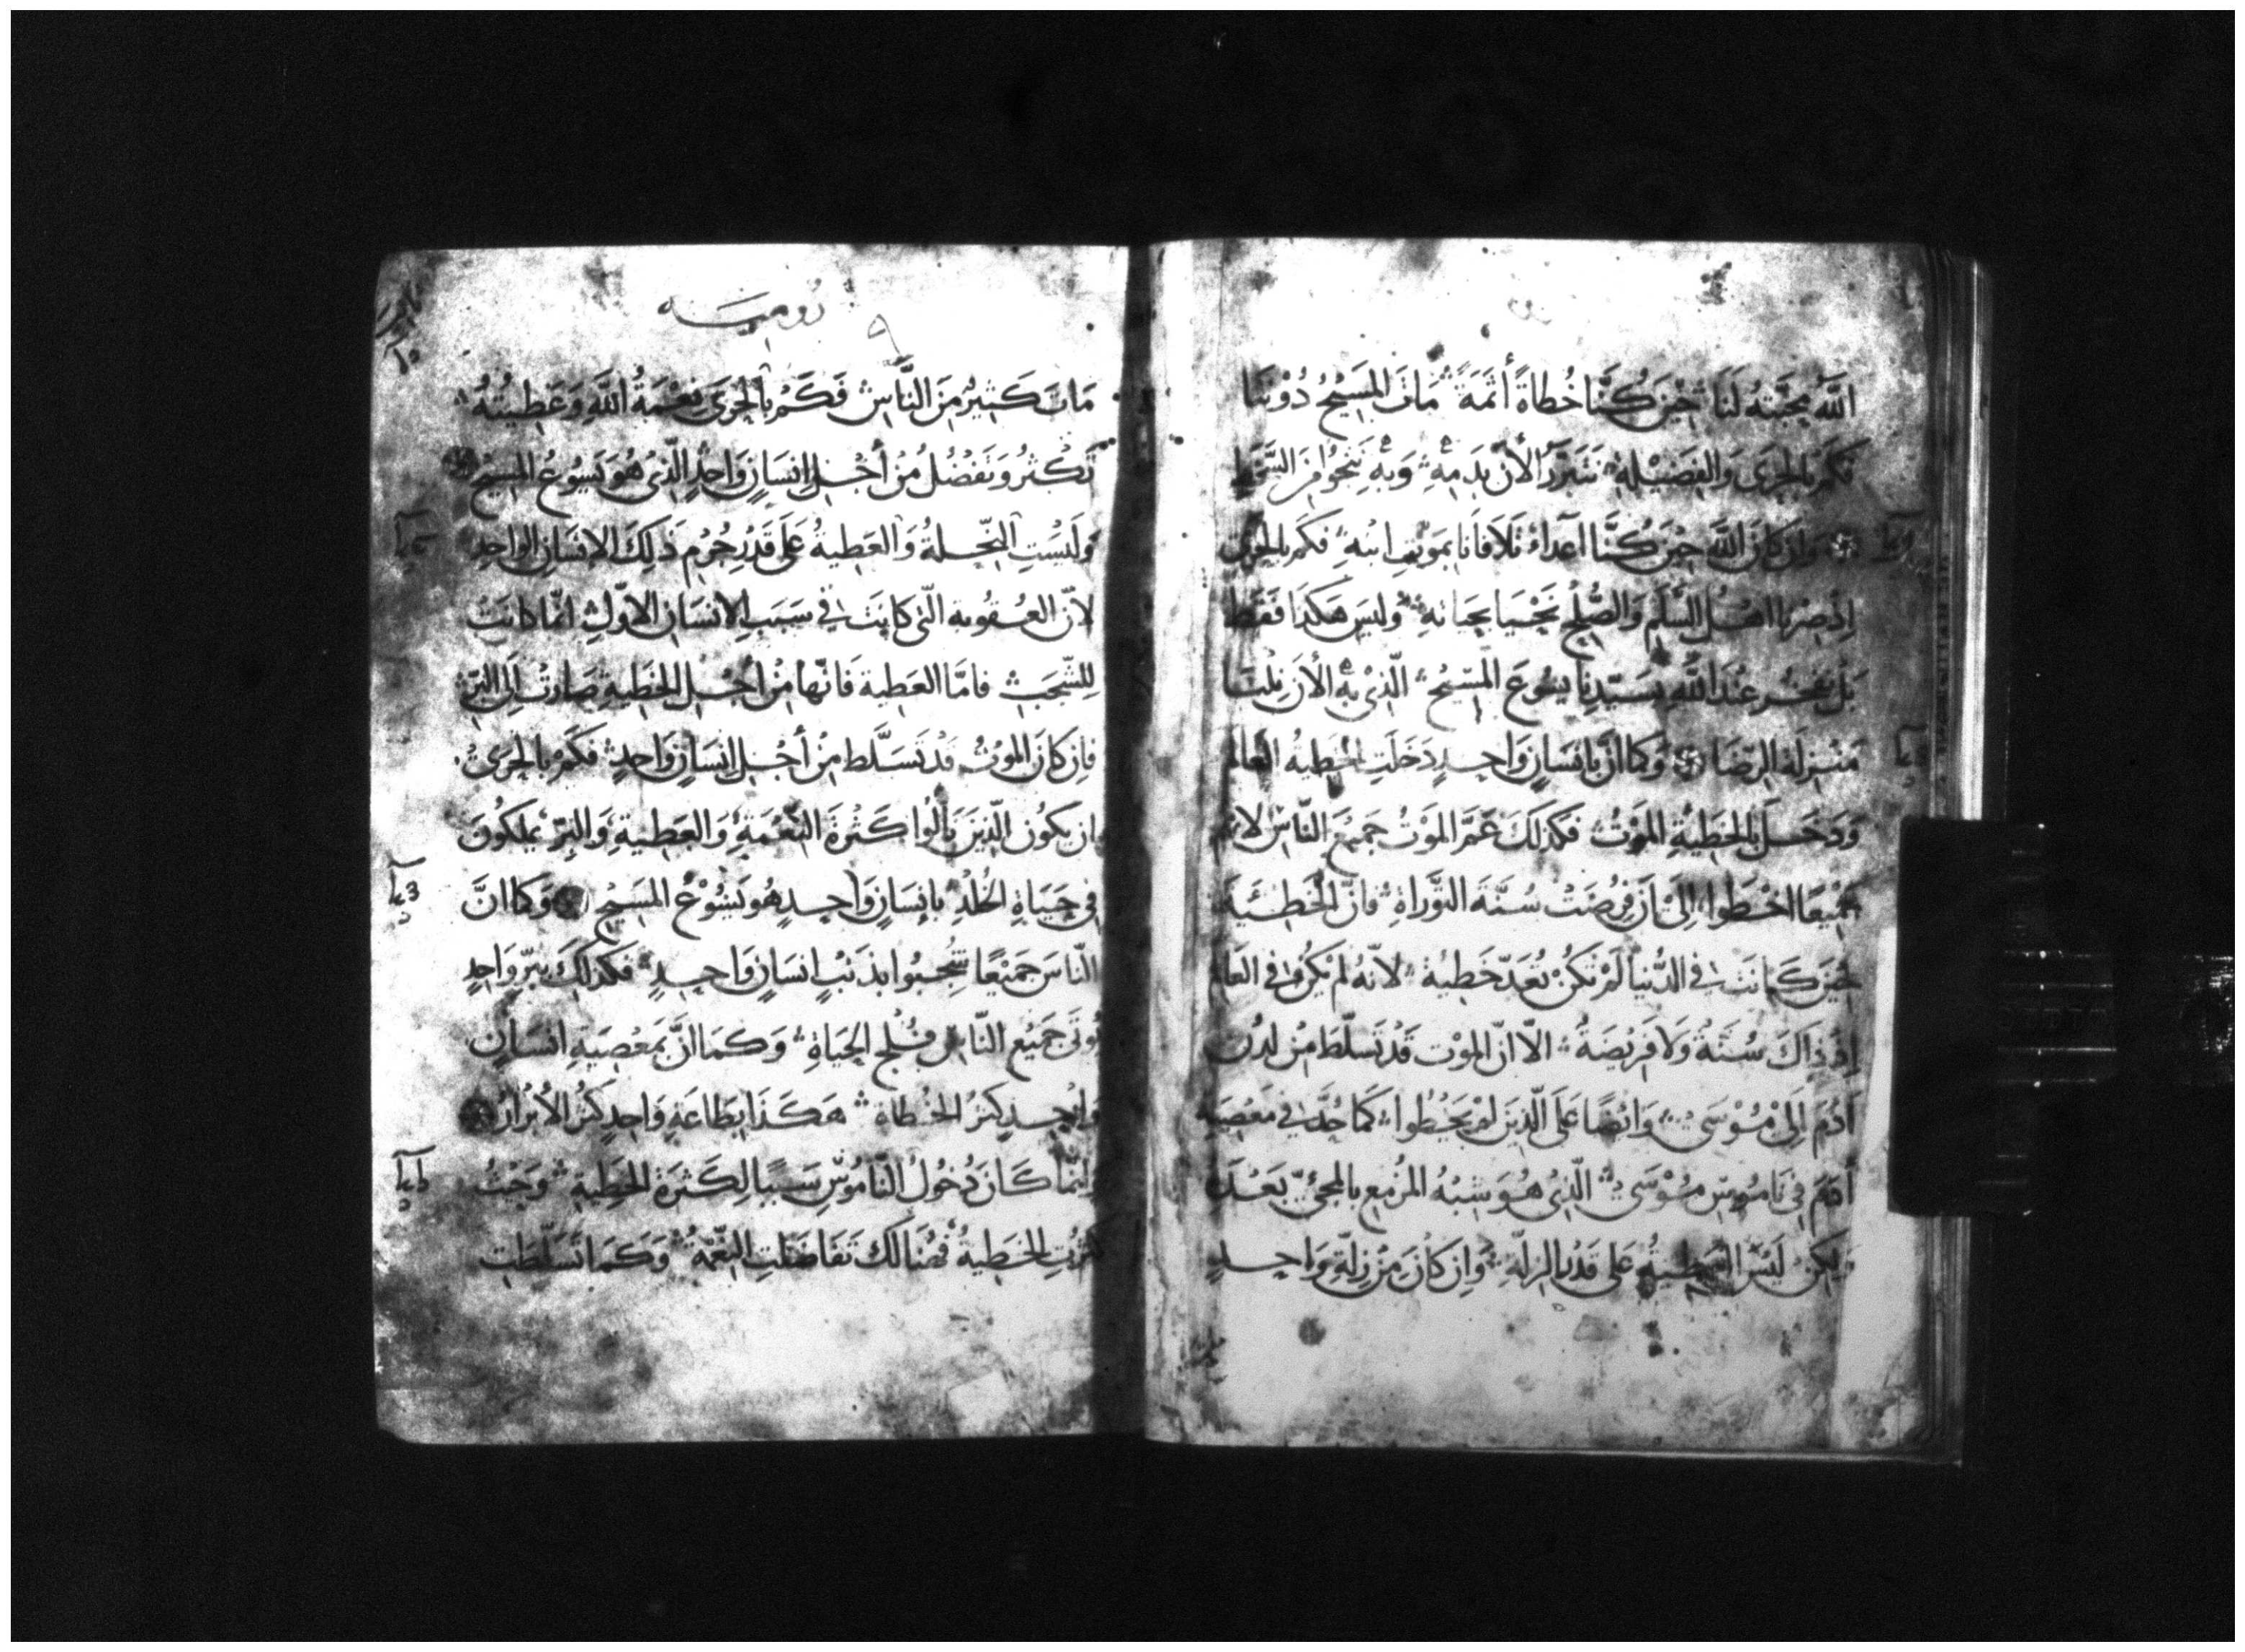 اللَّهُ بِمَحَبَّتِهِ لَنَا حِيْنَ كُنَّا خُطَاةً أَثَمَةً مَاتَ المَسِيْحُ دُوْنَنَا
فَكَمْ بِالحِرَى وَالفَضِيْلَةِ نَتَبَرَّرُ الأنَ بِدَمِهِ وَبِهِ نَنْجُوا مِنَ السَّخَطِ
وَإِنْ كَانَ اللَّه حِيْنَ كُنَّا أَعدَاءً تَلَافَانَا بِمَوْتِ ابْنِهِ فَكَمْ بِالحِرَى
إِذْ صِرْنَا اهْلُ السَّلَمِ وَالصُّلْحِ نَحْيَا بِحَيَاتِهِ وَلَيسَ هَكَذَا فَقَطْ
بَلْ نَفْتَخِرُ عِنْدَ اللَّهِ بِسَيِّدِنَا يَسُوعَ المَسِيْحُ الَّذِيْ بِهِ الأنَ نِلْنَا
مَنْزِلَة الرِّضَا وَكَمَا انَّ بِانسَانٍ وَاحِدٍ دَخَلَتِ الخَطِيةُ العَالم
وَدَخَلَ بِالخَطِيةِ المَوْتُ فَكَذَلِكَ عَمَّ المَوْتُ جَمِيْعَ النَّاسِ لانهم
جَمِيْعًا اخْطَوا الَى انْ فُرِضَتْ سُنَّةَ التَّوْرَاةِ فَانَّ الخَطِيئَةَ
حِيْنَ كَانَتْ فِي الدُّنيَا لَمْ تَكُنْ تُعَدّ خَطِيئة لانَهُ لَمْ يَكُنْ فِي العَالم
إِذْ ذَاكَ سُنَّةٌ وَلَا فَرِيْضَةٌ الّا انّ المَوْت قَدْ تَسَلَّطَ مِنْ لَدُنْ
آدَمَ إِلَى مُوْسَى وَايْضًا عَلَى الَّذِيْنَ لَمْ يَخْطُوا كَمَا حُدَّ فِي مَعْصِيَةِ
آدَمَ فِي نَامُوسِ مُوْسَى الَّذِي هُوَ شِبْهُ المُزْمِعِ بِالمجيْ بَعْدَهُ
وَلَكِنْ لَيْسَ العَطِيةُ عَلَى قَدْرِ الزلَّةِ وَإِنْ كَانَ مِنْ زَلّةِ وَاحِدٍ
رُوميَـــه
مَاتَ كَثِيْرٌ مِنَ النَّاسِ فَكَمْ بِالحِرَى نِعْمَةُ اللَّهِ وَعَطِيتُهُ
تَكْثُرُ وَتَفْضُلُ مِنْ أَجْلِ إِنسَانٍ وَاحِدٍ الَّذِي هُوَ يَسُوعُ المَسِيح
وَلَيْسَتِ النِّحْلَةُ وَالعَطِيةُ عَلَى قَدْرِ جُرْمِ ذَلِكَ الانسَانِ الوَاحِدِ
لانّ العُقُوبة الَّتِي كَانَتْ فِي سَبَبِ الانسَانِ الاوَّلِ انَّمَا كَانَتْ
لِلشَّجَبِ فَامَّا العَطِية فَانَّهَا مِنْ أَجْلِ الخَطِيةِ صَارَتْ إِلَى البِرّ
فَإِنْ كَانَ المَوْتُ قَدْ تَسَلَّط مِنْ أَجْلِ انسَانٍ وَاحِدٍ فَكَمْ بِالحِرَى
ان يَكُون الَّذِينَ نَالُوا كَثْرَةَ النِّعْمَةِ وَالعَطِيةِ وَالبِرّ يَملِكُونَ
فِي حَيَاةِ الخُلْدِ بِانسَانٍ وَاحِدٍ هُو يَسُوْعُ المَسِيْح وَكَمَا انَّ
النَّاسَ جَمِيْعًا شُجِبُوا بِذَنْبِ انسَانٍ وَاحِدٍ فَكَذَلِكَ بِبِرّ وَاحِدٍ
يُوتَى جَمِيْع النَّاسِ فُلْج الحَيَاةِ وَكَمَا انَّ بِمَعْصِيَةِ انسَانٍ
وَاحِدٍ كثرَ الخُطَاة هَكَذَا بِطَاعَةِ وَاحِدٍ كثرَ الأَبْرَارُ
وَإِنَّمَا كَانَ دُخُولُ النَّامُوسِ سَبَبًا لِكَثْرَة الخَطِيةِ وَحَيْثُ
كَثُرَتِ الخَطِيةُ فَهُنَالِكَ تَفَاضَلَتِ النِّعْمَةُ وَكَمَا تَسَلَّطَتِ